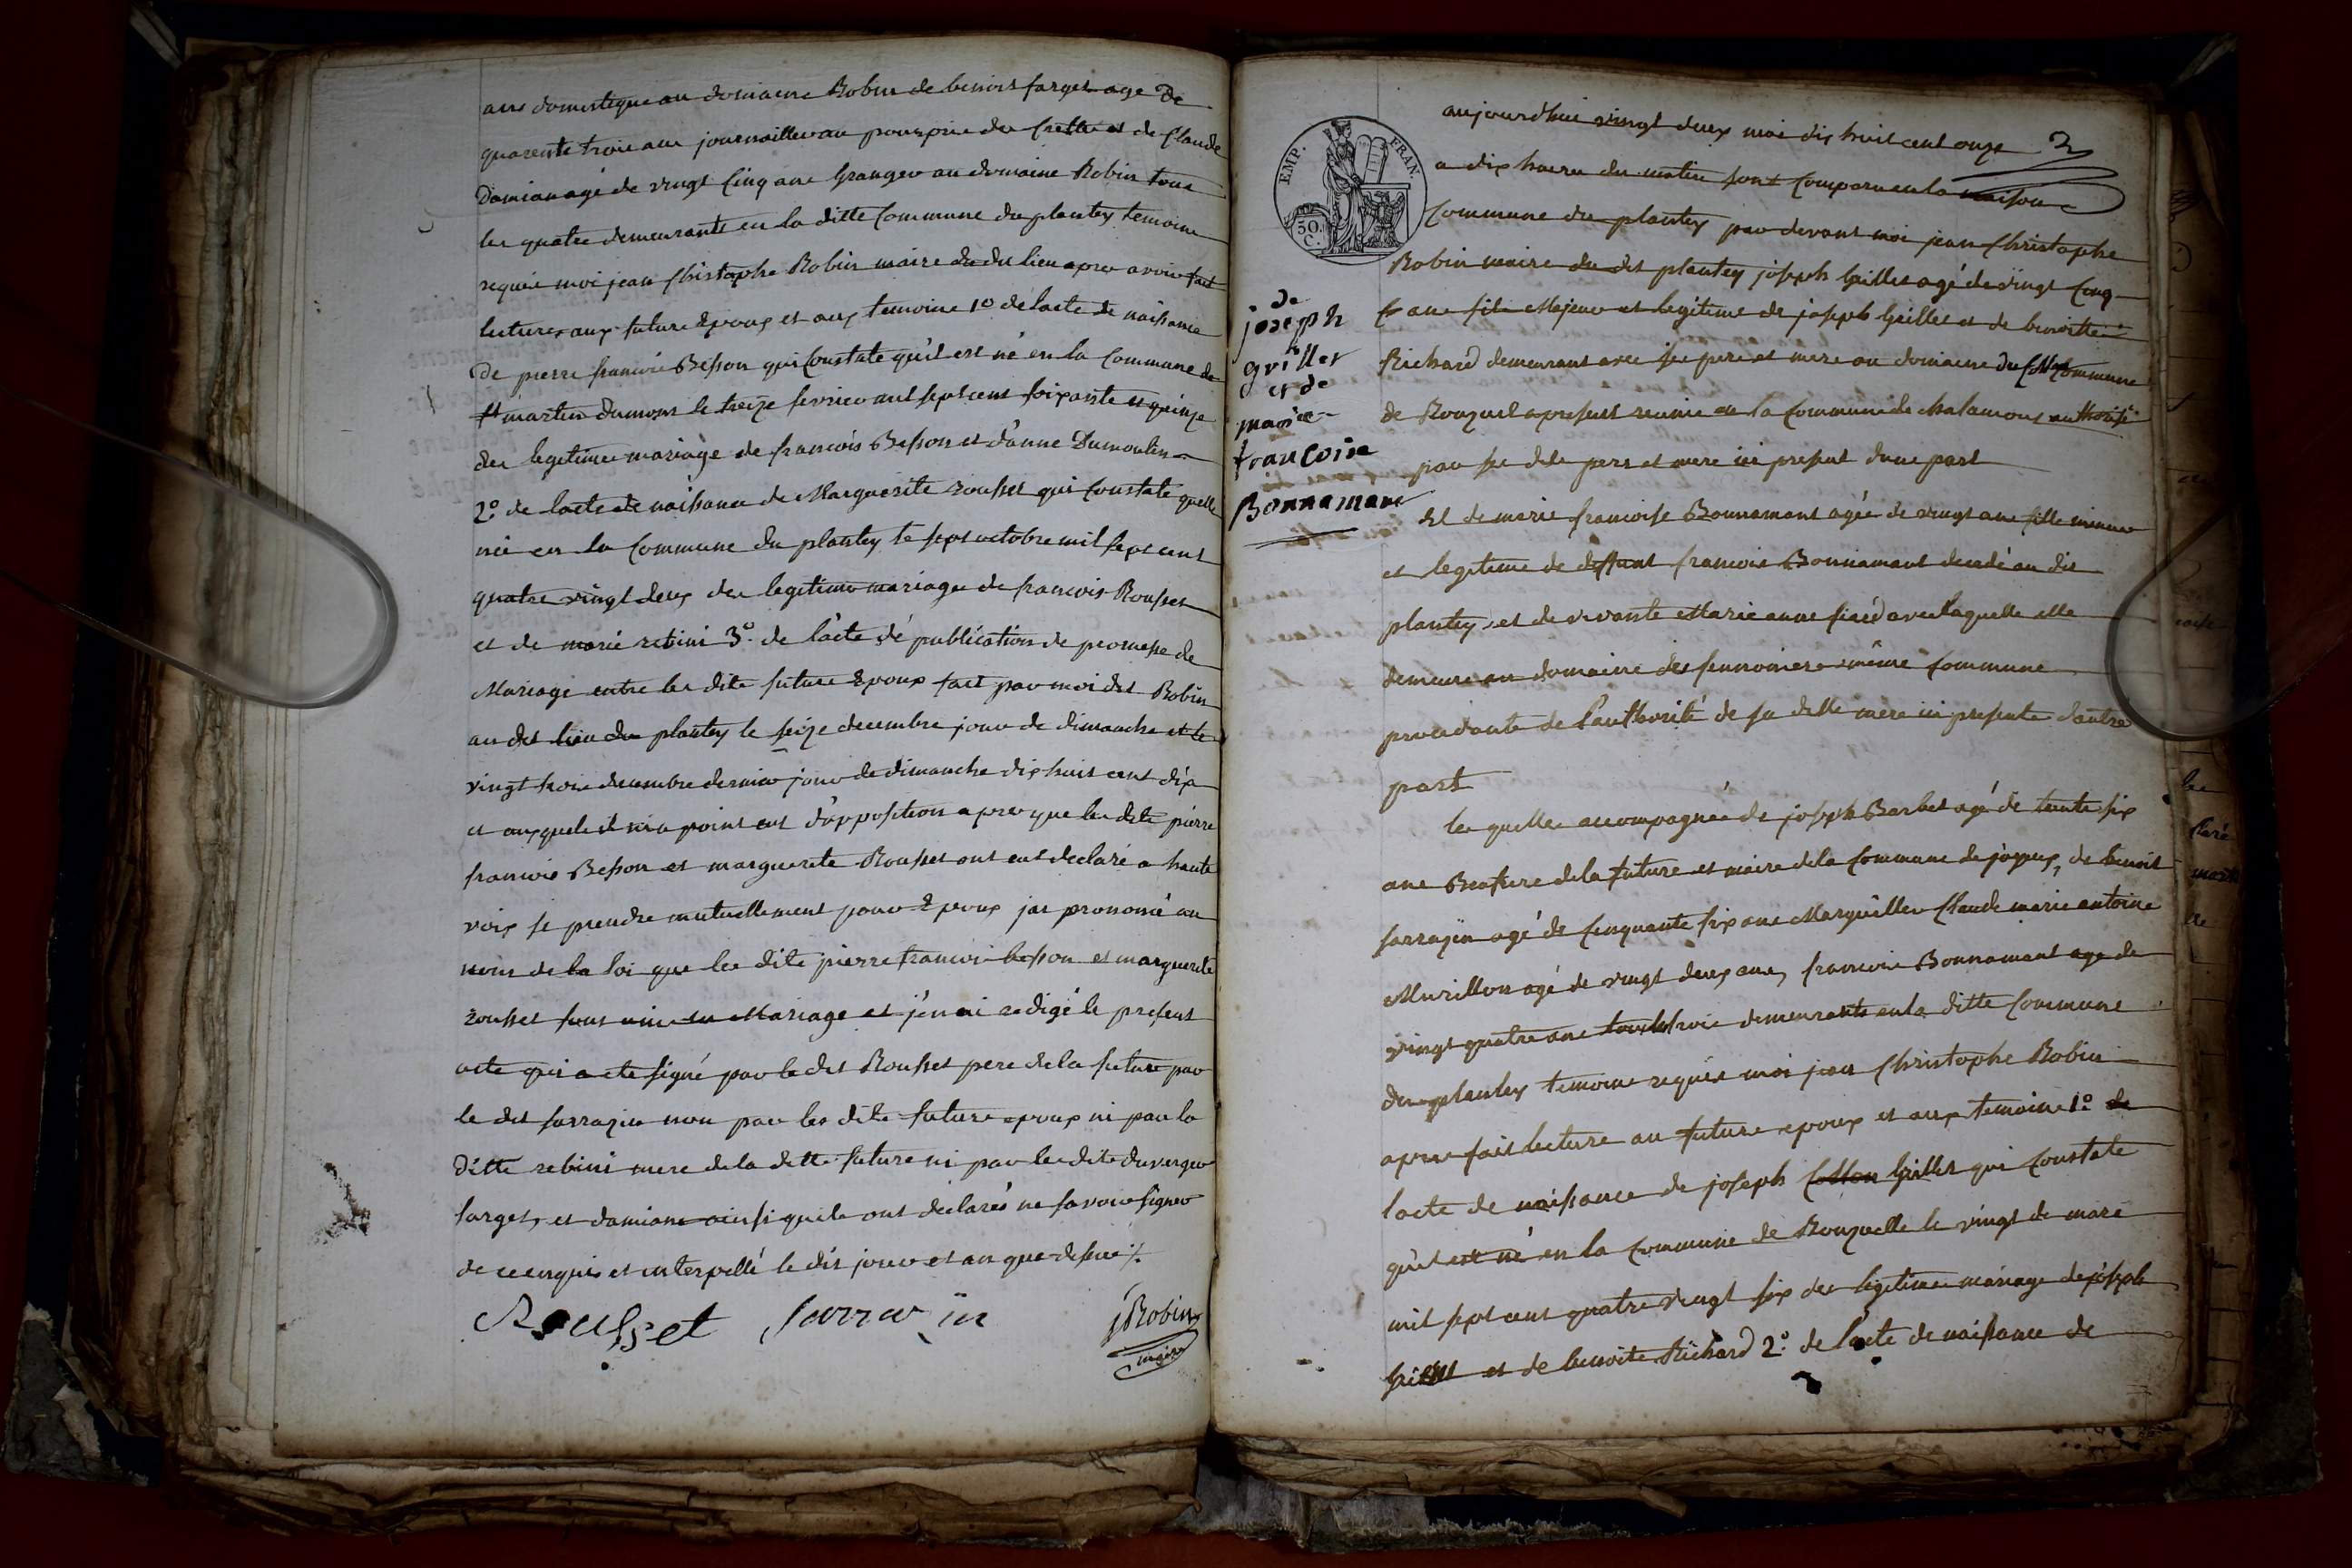 ans domestique au domaine Robin de benoit farget age de
quarente trois ans journaillier au pourprie du frette et de Claude
Damian agé de vingt Cinq ans Granger au domaine Robin tous
les quatre demeurants en la ditte Commune du plantey temoins
requis moi jean Christophe Robin maire du du lieu apres avoir fait
lectures aux future Epoux et aux temoins 1º de lacte de naissance
De pierre francois Besson qui Constate qu'il est né en la Commune de
st martin dumont le treize fevrier mil sept cent soixante et quinze
des legetimes mariage de francois Besson et d'anne Dumoulin
2º de lacte de naissance de Marguerite rousset qui Constate quelle
née en la Commune du plantey le sept octobre mil sept cent
quatre vingt deux des legetime mariage de francois Rousset
et de marie rebini 3º de lacte de publication de promesse de
Mariage entre les dits future Epoux fait par moi dit Robin
au dit lieu du plantey le seize decembre jour de dimanche et le
vingt trois decembre dernier jour de dimanche dix huit cent dix
et auxquels il n'i a point eut d'opposition apres que les dits pierre
francois Besson et marguerite Rousset ont eut declaré a haute
voix se prendre mutuellement pour Epoux jai prononcé au
nom de la loi que les dits pierre francois besson et marguerite
rousset sont unis en Mariage et j'en ai redigé le present
acte qui a eté signé par le dit Rousset pere de la future par
le dit sarrazin non par les dits future epoux ni par la
ditte rebini mere de la ditte future ni par les dits duverger
farget, et damian ainsi quils ont déclarés ne savoir signer
de ce enquis et interpellé le dit jour et an que dessus ./.
Rousset Sarrazin jRobin
maire
aujourdhui vingt deux mai dix huit cent onze 2
a dix heures du matin sont Comparu en la maison
Commune du plantey par devant moi jean Christophe
Robin maire du dit plantey joseph Grillet agé de vingt Cinq
ans fils Majeur et legitime de joseph Grillet et de benoitte
Richard demeurant avec ses pere et mere au domaine du Commune
de Ronzuel a present reunie a la Commune de chalamont authorisé
par ses dits pere et mere ici present dune part
Et de marie francoise Bonnamant agée de vingt ans fille mineur
et legitime de deffunt francois Bonnamant decedé au dit
plantey, et de vivante Marie anne avec laquelle elle
demeure au domaine des même Commune
procedante de l'authorité de sa ditte mere ici presente dautre
part
les quelles accompagnés de joseph Barbet agé de trente six
ans Beaufrere de la future et maire de la Commune de joyeux, de benoit
sarrazin agé de Cinquante six ans Marguillier Claude marie antoine
Murillon agé de vingt deux ans, francois Bonnamant age de
vingt quatre ans trois demeurants en la ditte Commune
du plantey temoins requis moi jean Christophe Robin
apres fait lecture au future epoux et aux temoins 1º de
lacte de naissance de joseph Grillet qui Constate
quil est né en la Commune de Ronzuelle le vingt de mars
mil sept cent quatre vingt six des legitimes mariage de joseph
Grillet et de benoite Richard 2º de lacte de naissance de
EMP. FRAN.
50.
C.
de
joseph
grillet
et de
marie
francoise
Bonnamant